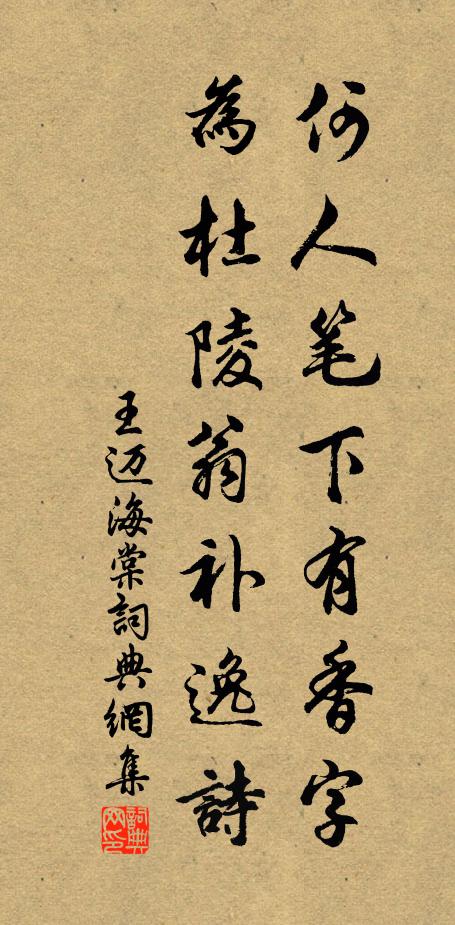 何人笔下有香字
為杜陵翁补逸詩
王迈海棠詞典網集
詞典
网印